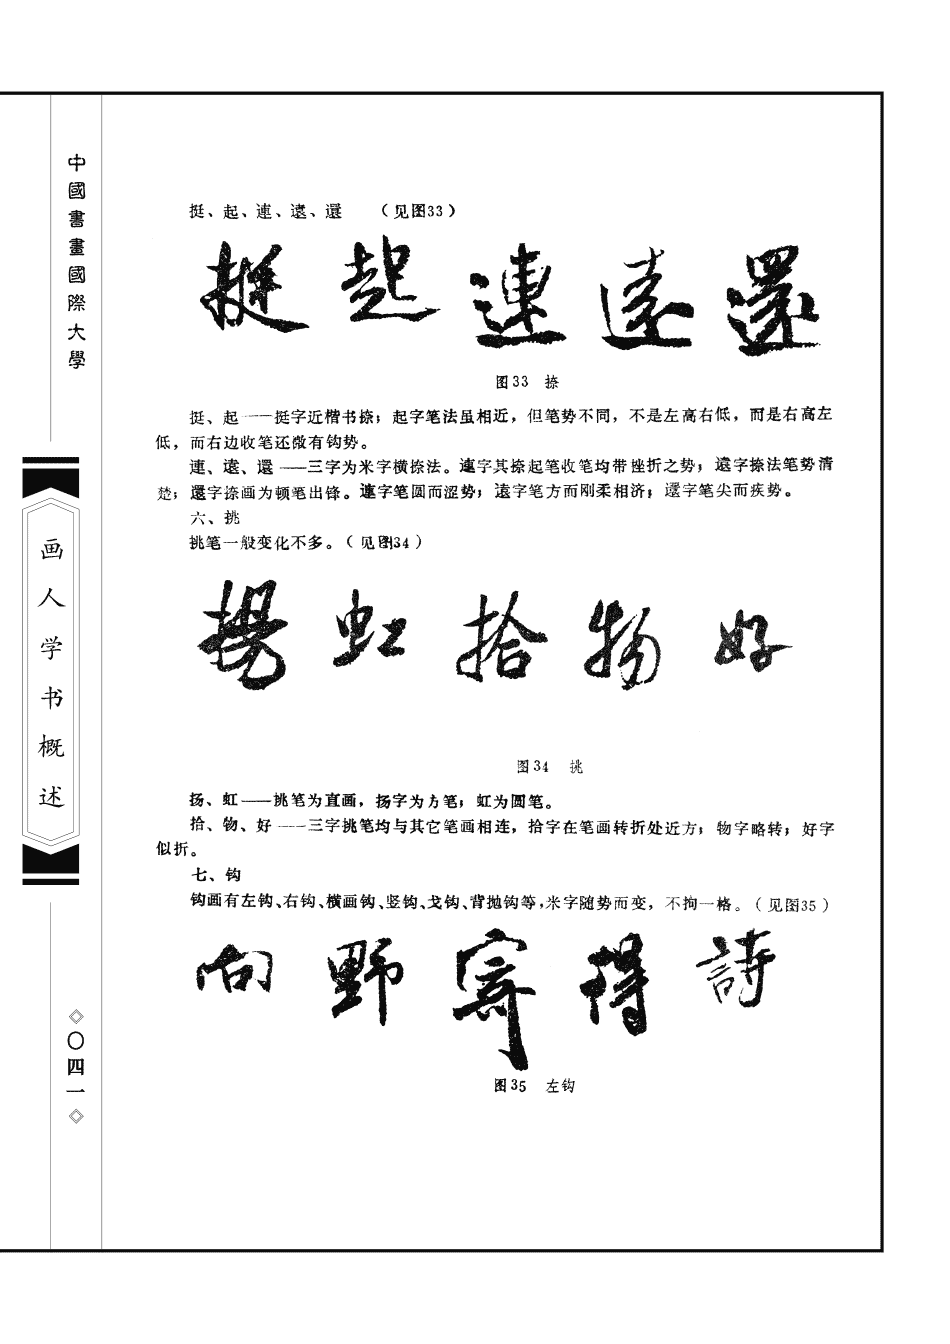 中國書畫國際大學
画人学书概述
〇四一
挺、起、連、遠、還 （见图33）
挺 起 連 遠 還
图33 捺
挺、起——挺字近楷书捺；起字笔法虽相近，但笔势不同，不是左高右低，而是右高左
低，而右边收笔还微有钩势。
連、遠、還——三字为米字横捺法。連字其捺起笔收笔均带挫折之势；遠字捺法笔势清
楚；還字捺画为顿笔出锋。連字笔圆而涩势；遠字笔方而刚柔相济；還字笔尖而疾势。
六、挑
挑笔一般变化不多。（见图34）
揚 虹 拾 物 好
图34 挑
扬、虹——挑笔为直画，扬字为方笔；虹为圆笔。
拾、物、好——三字挑笔均与其它笔画相连，拾字在笔画转折处近方；物字略转；好字
似折。
七、钩
钩画有左钩、右钩、横画钩、竖钩、戈钩、背抛钩等，米字随势而变，不拘一格。（见图35）
向 野 寄 得 詩
图35 左钩